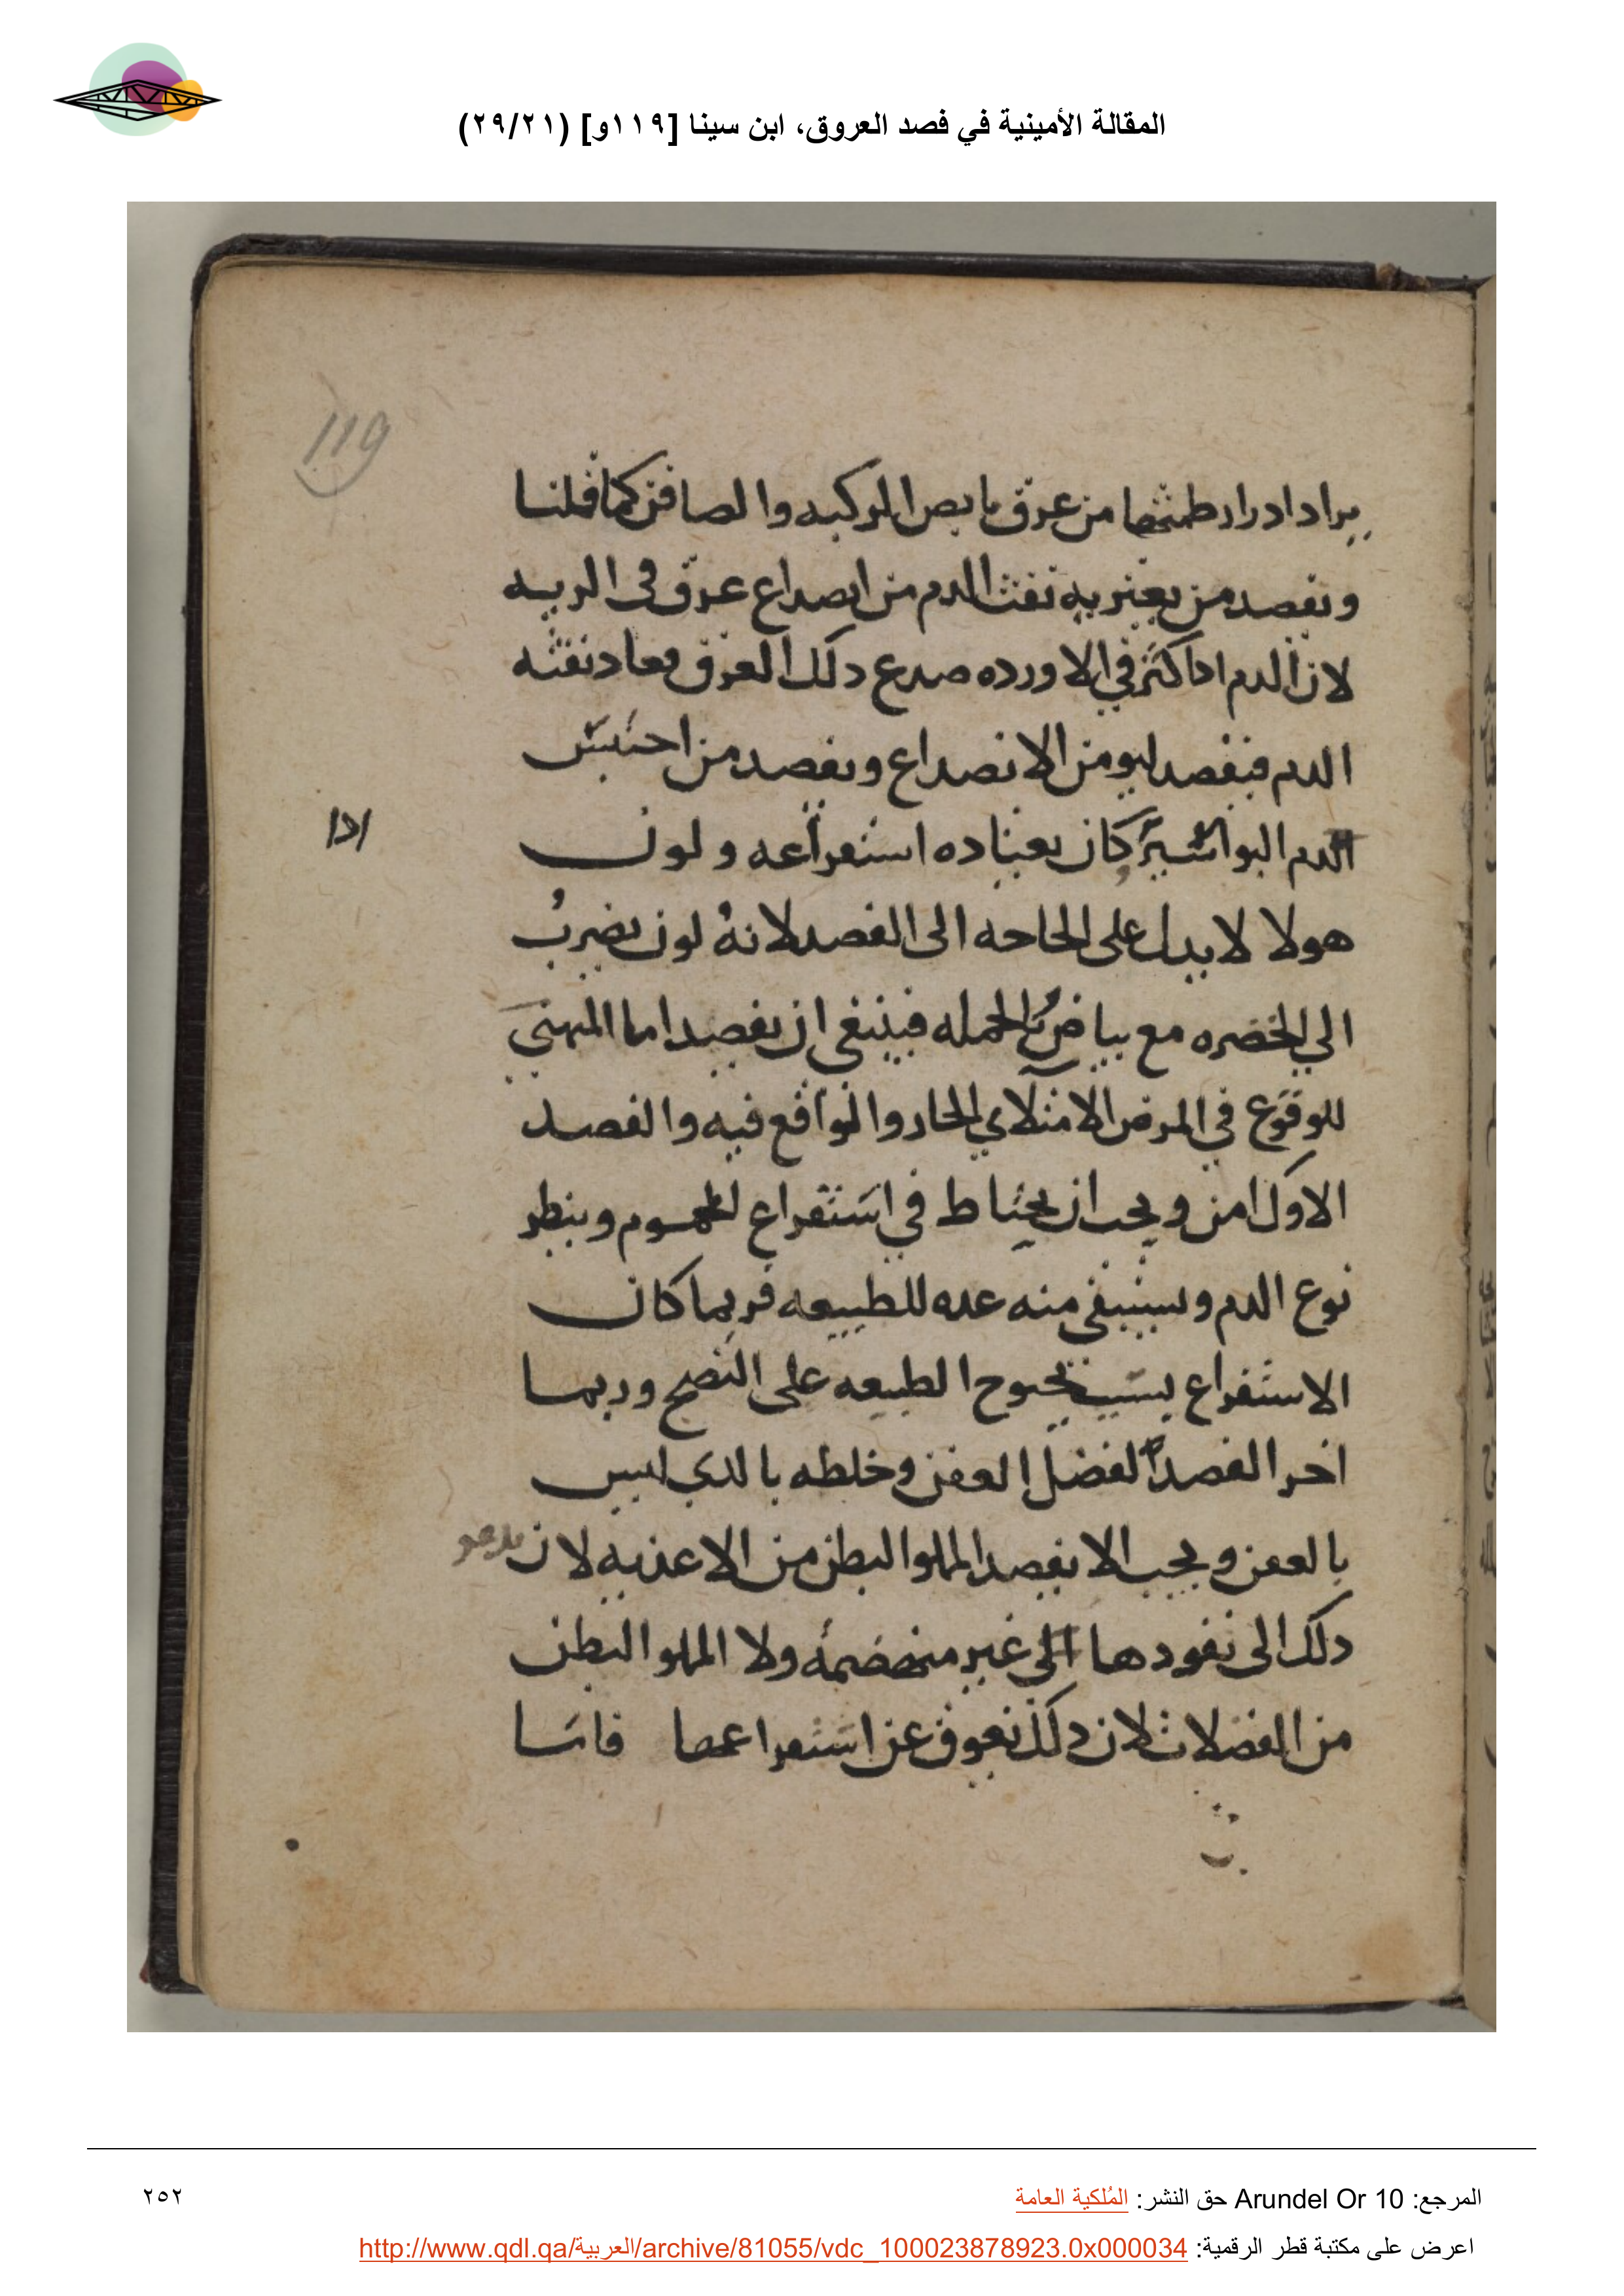 المقالة الأمينية في فصد العروق، ابن سينا [١١٩و] (٢٩/٢١)
119
يراد ادرار طمثها من عرق مابص الركبه والصافن كما قلنا
ونفصد من يعتريه نفث الدم من انصداع عرق فى الريه
لان الدم اذا كثر في الاورده صدع ذلك العرق فعاد نفثه
الدم فيفصد ليومن الانصداع ونفصد من احتبس
الدم البواسير كان يعتاده استفراغه ولون
ادا
هولا لا يدل على الحاجه الى الفصد لانهُ لون يضربُ
الي الخضره مع بياض الجمله فينبغى ان يفصد اما المتهيي
للوقوع في المرض الامتلاي الحار والواقع فيه والفصد
الاول امن ويجب ان يحتاط في استفراغ المحموم وينظر
نوع الدم ويستبقى منه عده للطبيعه فربما كان
الاستفراغ يسبب الطبيعه على النضج وربما
اخر الفصد الفضل العفن وخلطه بالدي ليس
بالعفن ويجب الا يفصد المملو البطن من الاغذيه لان يدعو
ذلك الى نفودها الى غير منهضمه ولا المملو البطن
من الفضلات لان ذلك يعوق عن استفراغها فاسا
المرجع: Arundel Or 10 حق النشر: المُلكية العامة
٢٥٢
اعرض على مكتبة قطر الرقمية: http://www.qdl.qa/العربية/archive/81055/vdc_100023878923.0x000034